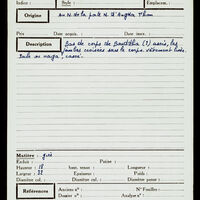 Index : Style : Emplacem. :
Origine au N. de la porte N. d'Angkor Thom
Prix Date acquis. Date entrée
Description Bas de corps de Bouddha (?) assis, les
jambes croisées sous le corps. Vêtement lisse.
Dale en naga cassé.
Matière : grès
Enduit : Patine :
Hauteur : 18 haut. tenon : Longueur :
Largeur : 22 Epaisseur : Poids :
Diamètre col. : Diamètre panse :
Références Anciens n° : N° Fouilles :
Dossier n° : Analyse n° :